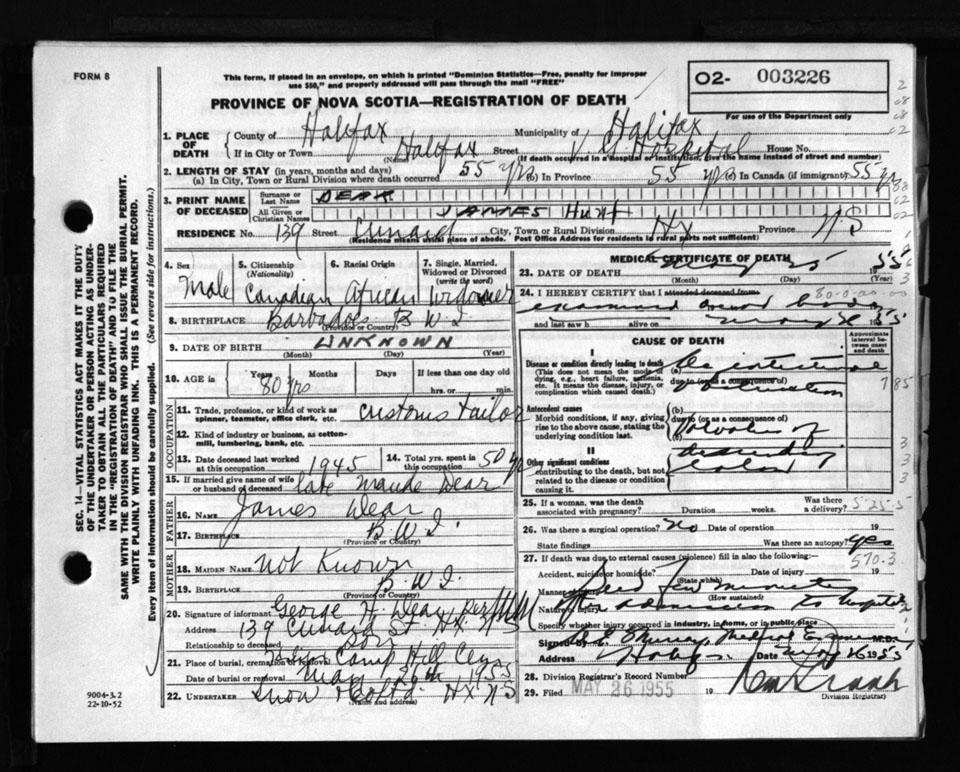 FORM 8
This form, if placed in an envelope, on which is printed "Dominion Statistics—Free, penalty for improper
use $50," and properly addressed will pass through the mail "FREE"
PROVINCE OF NOVA SCOTIA—REGISTRATION OF DEATH
O2- 003226
For use of the Department only
1. PLACE OF DEATH County of Halifax Municipality of Halifax
If in City or Town Halifax Street V. G. Hospital House No.
(Name) (If death occurred in a hospital or institution, give the name instead of street and number)
2. LENGTH OF STAY (in years, months and days)
(a) In City, Town or Rural Division where death occurred 55 yrs (b) In Province 55 yrs (c) In Canada (if immigrant) 55 yrs
3. PRINT NAME OF DECEASED Surname or Last Name DEAR
All Given or Christian Names JAMES Hunt
RESIDENCE No. 139 Street Cunard City, Town or Rural Division Hx Province N S
(Residence means usual place of abode. Post Office Address for residents in rural parts not sufficient)
4. Sex Male
5. Citizenship (Nationality) Canadian
6. Racial Origin African
7. Single, Married, Widowed or Divorced (write the word) Widower
8. BIRTHPLACE Barbados B W I
(Province or Country)
9. DATE OF BIRTH UNKNOWN
(Month) (Day) (Year)
10. AGE in Years Months Days If less than one day
80 yrs hrs. or min.
OCCUPATION
11. Trade, profession, or kind of work as
spinner, teamster, office clerk, etc. customs tailor
12. Kind of industry or business, as cotten-
mill, lumbering, bank, etc.
13. Date deceased last worked
at this occupation 1945
14. Total yrs. spent in
this occupation 50 yrs
15. If married give name of wife
or husband of deceased late Maude Dear
FATHER
16. Name James Dear
17. Birthplace B.W.I.
(Province or Country)
MOTHER
18. MAIDEN NAME Not Known
19. BIRTHPLACE B.W.I.
(Province or Country)
20. Signature of informant George H. Dear
Address 139 Cunard St. Hx. N S
Relationship to deceased Son
21. Place of burial, cremation or removal Camp Hill Cem
Date of burial or removal May 28th 1955
22. UNDERTAKER Snow & Co Ltd. Hx N S
(Name and address)
MEDICAL CERTIFICATE OF DEATH
23. DATE OF DEATH May 25 1955
(Month) (Day) (Year)
24. I HEREBY CERTIFY that I attended deceased from
examined
and last saw h alive on May 1955
CAUSE OF DEATH
Approximate interval between onset and death
I
Disease or condition directly leading to death
(This does not mean the mode of
dying, e.g., heart failure, asthenia,
etc. It means the disease, injury, or
complication which caused death.)
(a) intestinal
due to (or as a consequence of)
Antecedent causes
Morbid conditions, if any, giving
rise to the above cause, stating the
underlying condition last.
(b)
due to (or as a consequence of)
(c) Volvulus of
II
Other significant conditions
contributing to the death, but not
related to the disease or condition
causing it.
descending
colon
25. If a woman, was the death
associated with pregnancy? Duration weeks. Was there a delivery?
5-25-5
26. Was there a surgical operation? No Date of operation 19
State findings Was there an autopsy? yes
570.3
27. If death was due to external causes (violence) fill in also the following:—
Accident, suicide or homicide? Date of injury 19
(State which)
Manner of injury Died few minutes
(How sustained)
Nature of injury after admission to hospital
Specify whether injury occurred in industry, in home, or in public place
Signed by Murray, Medical Examiner M.D.
Address Halifax Date May 26 1955
28. Division Registrar's Record Number
29. Filed MAY 26 1955 19
Division Registrar)
SEC. 14—VITAL STATISTICS ACT MAKES IT THE DUTY
OF THE UNDERTAKER OR PERSON ACTING AS UNDER-
TAKER TO OBTAIN ALL THE PARTICULARS REQUIRED
IN THE "REGISTRATION OF DEATH" AND TO FILE THE
SAME WITH THE DIVISION REGISTRAR WHO SHALL ISSUE THE BURIAL PERMIT.
WRITE PLAINLY WITH UNFADING INK. THIS IS A PERMANENT RECORD.
Every item of information should be carefully supplied. (See reverse side for instructions.)
9004-3.2
22-10-52